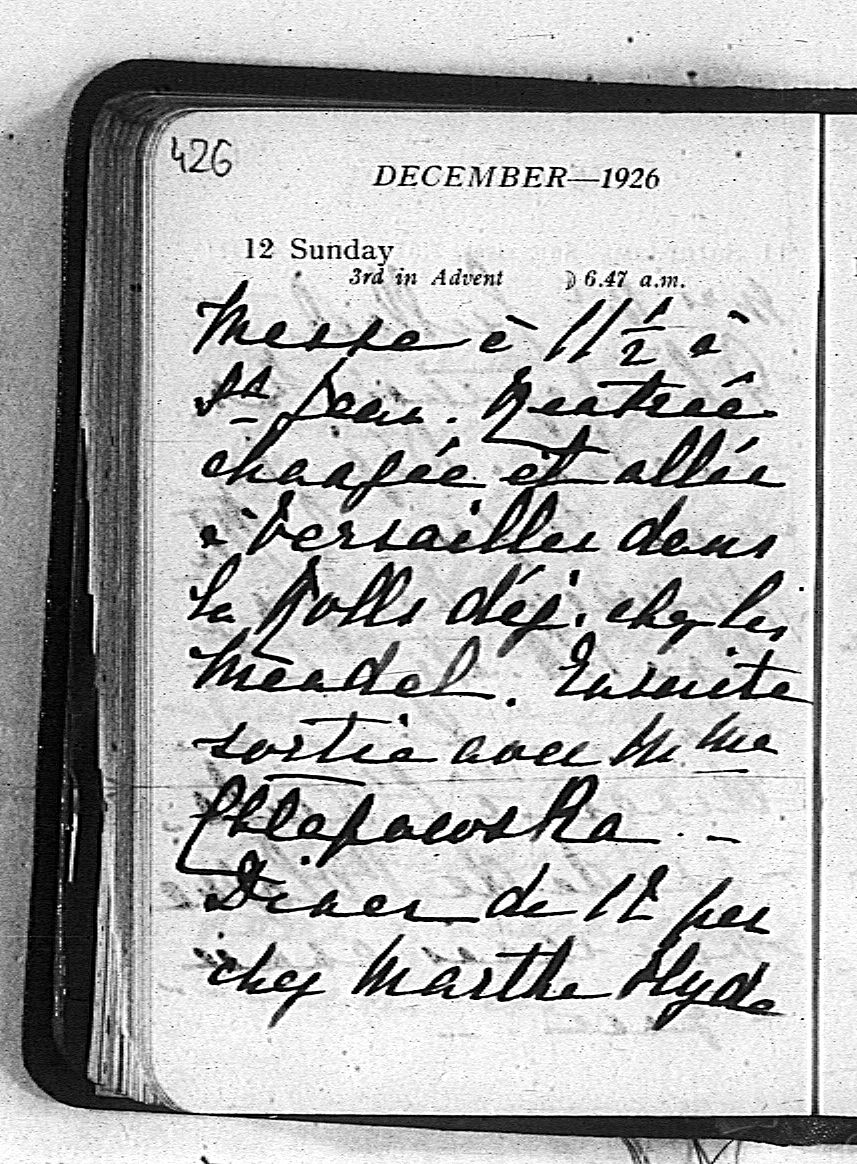 426
DECEMBER—1926
12 Sunday
3rd in Advent ☽ 6.47 a.m.
Messe à 11 1/2 à
St Jean. Rentrée
changée et allée
à Versailles dans
la Rolls déj. chez les
Mendel. Ensuite
sortie avec M.me
Chlapowska. –
Diner de 12 per
chez Marthe Hyde